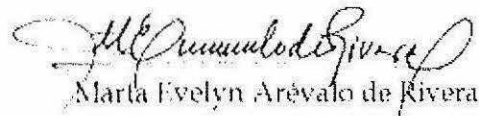 Marta Evelyn Arévalo de Rivera